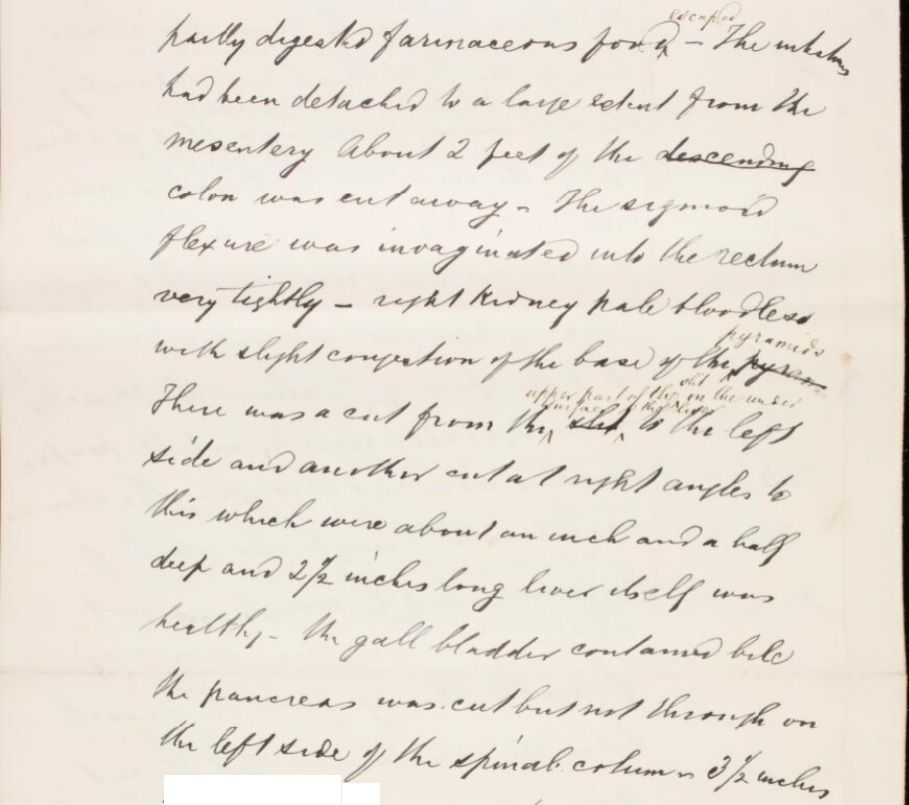 escaped
partly digested farinaceous food ^ – The intestines
had been detached to a large extent from the
mesentery About 2 feet of the descending
colon was cut away – The sigmoid
flexure was invaginated into the rectum
very tightly – right kidney pale bloodless
pyramids
with slight congestion of the base of the ^
slit
upper part of the on the under
surface of the liver
There was a cut from the ^ slit ^ to the left
side and another cut at right angles to
this which were about an inch and a half
deep and 2½ inches long liver itself was
healthy – the gall bladder contained bile
the pancreas was cut but not through on
the left side of the spinal column 3½ inches